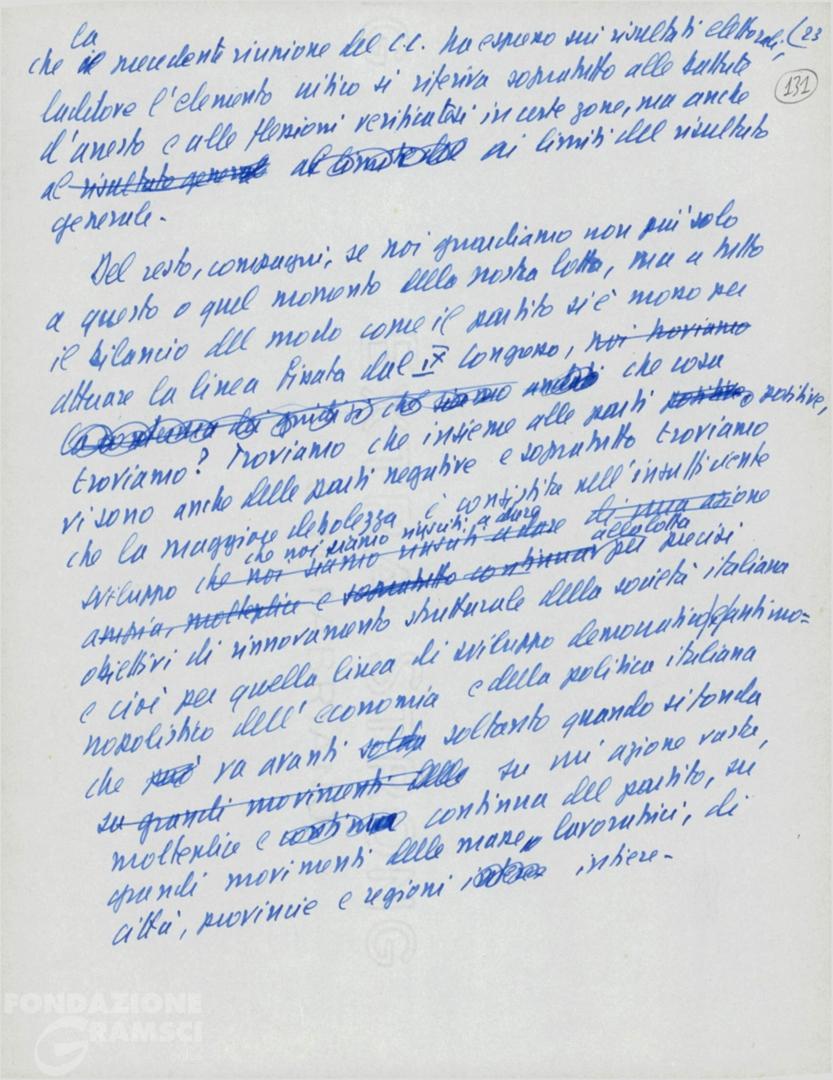 la (23
che il precedente riunione del C.C. ha espresso sui risultati elettorali,
laddove l'elemento critico si riferiva sopratutto alle battute (131)
d'arresto e alle flessioni verificatesi in certe zone, ma anche
al risultato generale ai limiti del risultato
generale.
Del resto, compagni, se noi guardiamo non più solo
a questo o quel momento della nostra lotta, ma a tutto
il bilancio del modo come il partito si è mosso per
attuare la linea fissata dal IX Congresso, noi troviamo
che siamo che cosa
troviamo? Troviamo che insieme alle parti positive,
vi sono anche delle parti negative e sopratutto troviamo
che la maggiore debolezza è consistita nell'insufficiente
che noi siamo riusciti a dare
sviluppo che noi siamo riusciti a dare di una azione
alla lotta
ampia, molteplice e sopratutto continua per precisi
obiettivi di rinnovamento strutturale della società italiana
e cioè per quella linea di sviluppo democratico e antimo=
nopolistico dell'economia e della politica italiana
che può va avanti solta soltanto quando si fonda
su grandi movimenti delle su un'azione vasta,
molteplice e continua continua del partito, su
grandi movimenti delle masse lavoratrici, di
città, provincie e regioni intiere.
FONDAZIONE
GRAMSCI